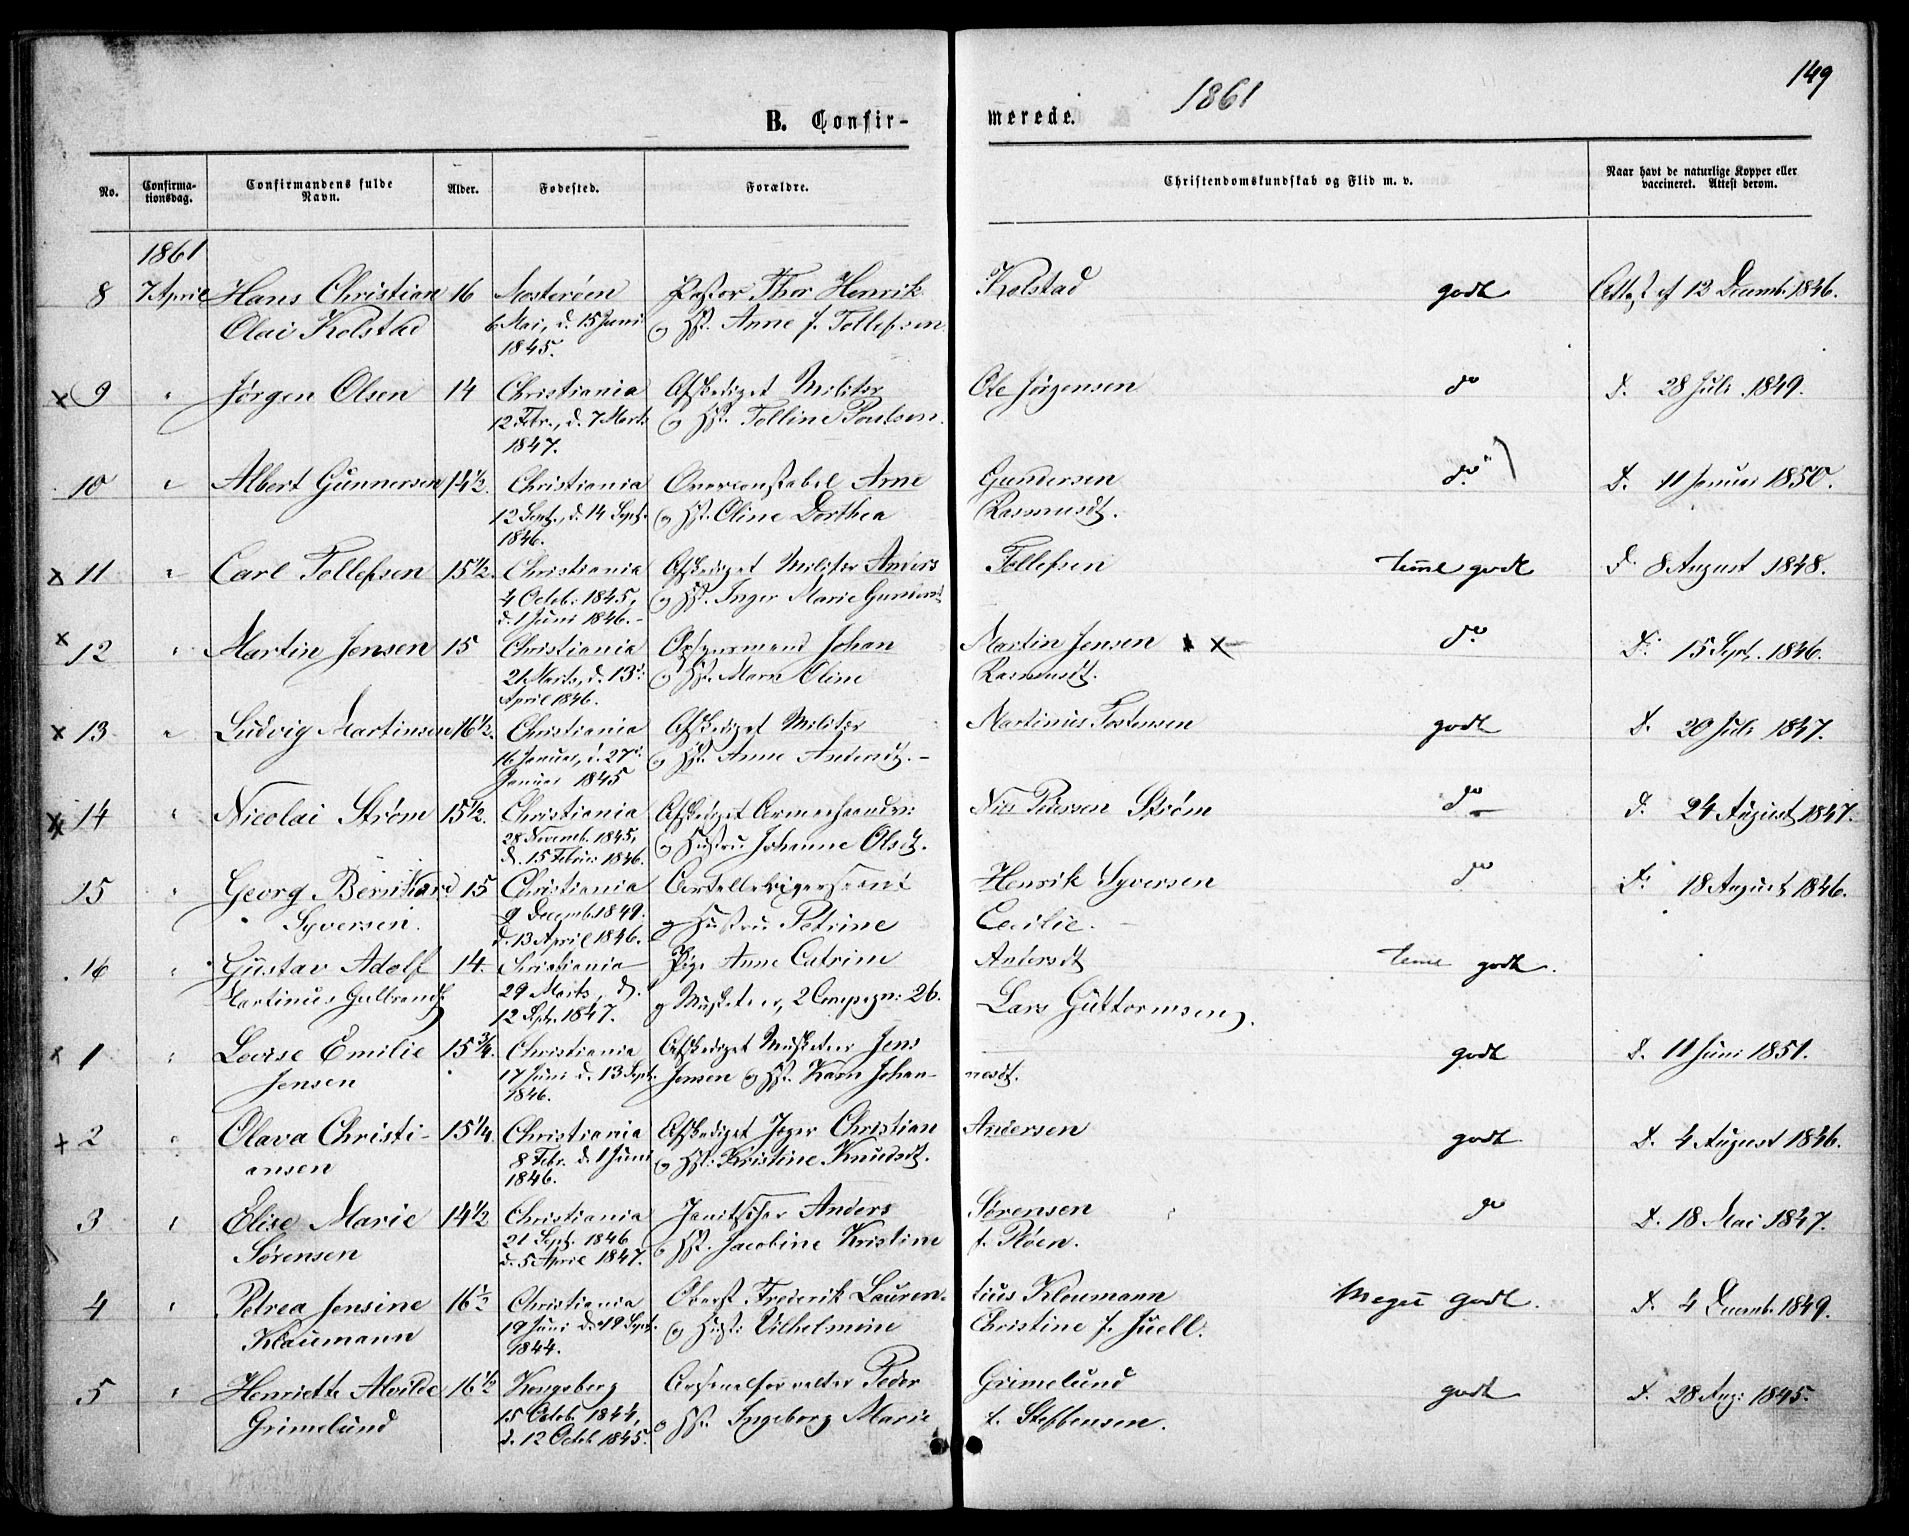 149
1861
B. Confir- merede.
No. Confirma- Confirmandens fulde Alder. Fødested. Forældre. Christendomskundskab og Flid m. v. Naar havt de naturlige Kopper eller
tionsdag. Navn. vaccineret. Attest derom.
1861
8 7 April Hans Christian 16 Pastor Thor Henrik Kolstad godt Attest af 12 Decemb. 1846.
Olai Kolstad 6 Mai, d. 15 Juni og Hst. Anne f. Tollefsen
1845.
x 9 " Jørgen Olsen 14 Christiania Afskediget Militær Ole Jørgensen do D. 28 Juli 1849.
12 Febr., d. 7 Marts og Hst. Tolline Poulsen.
1847.
10 " Albert Gunnersen 14½. Christiania Overconstabel Arne Gundersen do D. 11 Januar 1850.
12 Sept., d. 14 Sept. og Hst. Oline Dorthea Rasmusdt.
1846.
x 11 " Carl Tollefsen 15½. Christiania Afskediget Militær Anders Tollefsen temel godt D. 8 August 1848.
4 Octob. 1845, og Hst. Inger Marie
d. 1 Juni 1846.-
x 12 " Martin Jensen 15 Christiania Opsynsmand Johan Martin Jensen x do D. 15 Sept. 1846.
21 Marts, d. 13 og Hst. Maren Oline Rasmusdt.
April 1846.
x 13 " Ludvig Martinsen 16½. Christiania Afskediget Militær Martinus Torstensen godt D. 20 Juli 1847.
16 Januar, d. 27 og Hst. Anne Andersdt.-
Januar 1845
x 14 " Nicolai Strøm 15½. Christiania Afskediget Nils Strøm do D. 24 August 1847.
28 Novemb. 1845, og Hustru Johanne Olsdt.
d. 15 Februar 1846.
15 " Georg Bernhard 15 Christiania Henrik Syversen do D. 18 August 1846.
Syversen. 9 Decemb. 1849. og Hustru Petrine Cecilie.
d. 13 April 1846.
16 " Gustav Adolf 14. Christiania Pige Anne Catrine Andersdt temel godt.
Martinus Gulbrands. 29 Marts, d. og Musketeer, 2 Compagn: 26. Lars Guttormsen.
12 Sept. 1847.
x 1 " Lovise Emilie 15¾. Christiania Afskediget Musketeer Jens godt D. 11 Juni 1851.
Jensen 17 Juni d. 13 Sept. Jensen og Hst. Karn Johan- nesdt.
1846.
+ 2 " Olava Christi- 15¼ Christiania Afskediget Jæger Christian Andersen godt D. 4 August 1846.
ansen 8 Febr. d. 1 Juni og Hst. Kristine Knudsdt.
1846.
3 " Elise Marie 14½ Christiania Janitschar Anders Sørensen do D. 18 Mai 1847.
Sørensen 21 Sept. 1846 og Hst. Jacobine Kristine f. Pløen.
d. 5 April 1847.
4 " Petrea Jensine 16½ Christiania Oberst Frederik Lauren- tius Klaumann Meget godt. D. 4 Decemb. 1849.
Klaumann 19 Juni d. 19 Sept. og Hust: Vilhelmine Christine f. Juell.
1844.
5 " Henriette Alvilde 16½ Kongsberg Arsenalforvalter Peder Grimelund godt D. 28 Aug: 1845.
Grimelund 15 Octob. 1844, og Hst. Ingeborg Marie f. Steffensen.
d. 12 Octob. 1845.